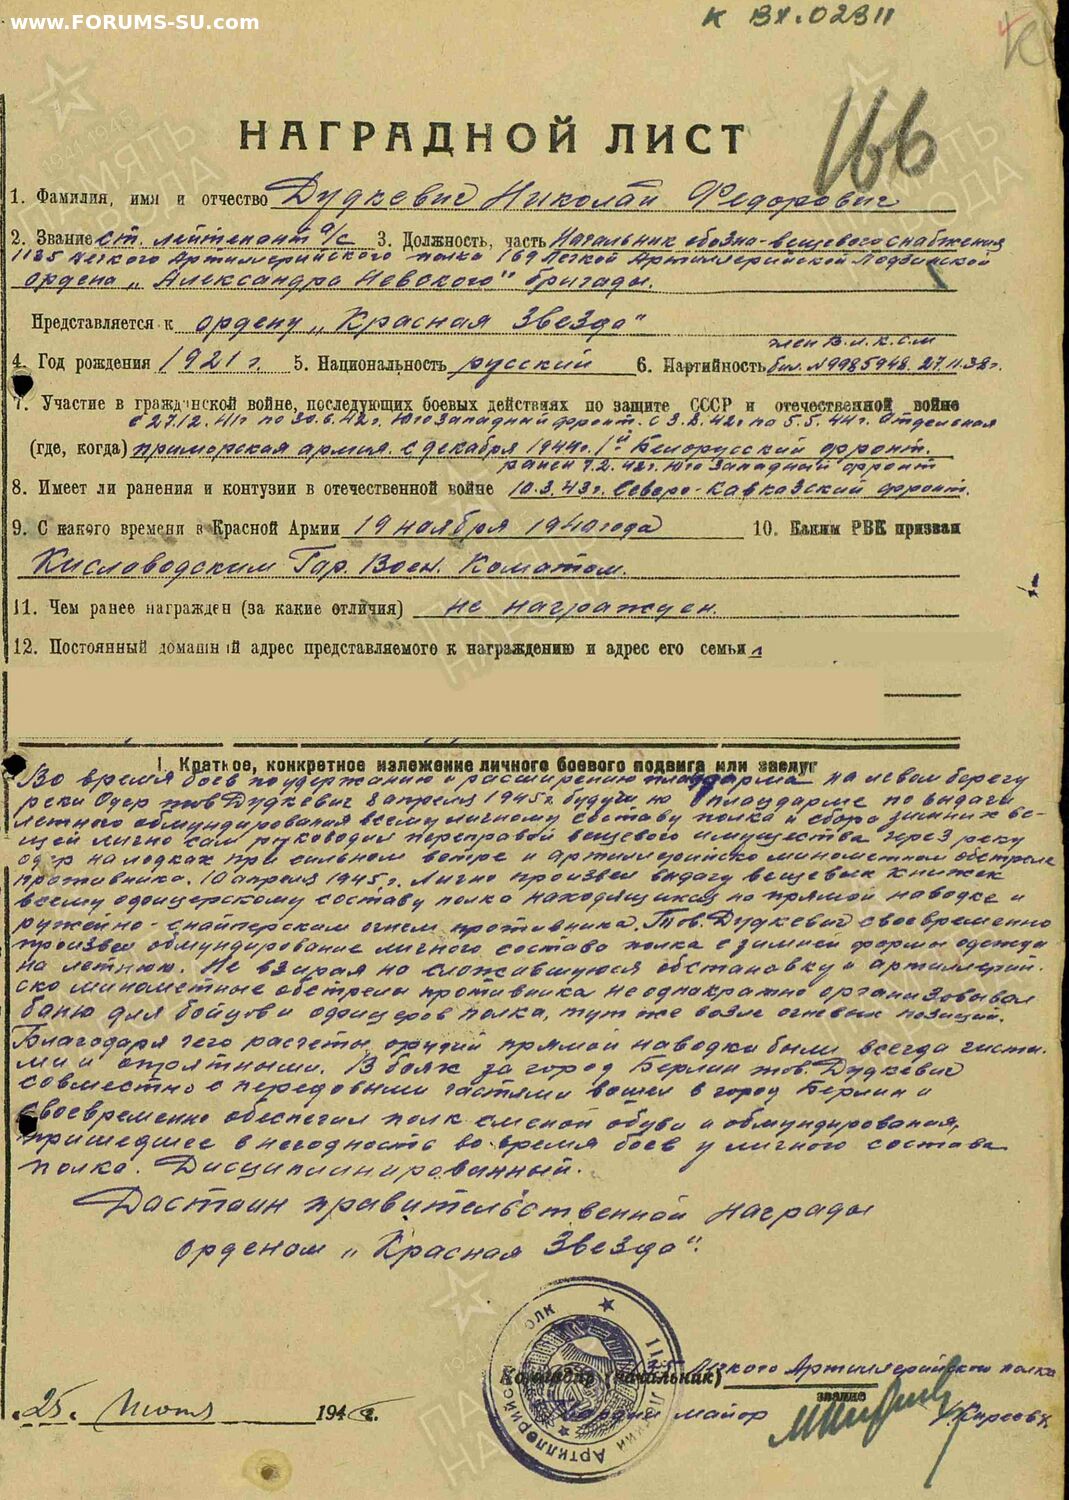 www.FORUMS-SU.com
К вх. 02811
166
НАГРАДНОЙ ЛИСТ
1. Фамилия, имя и отчество Дудкевич Николай Федорович
2. Звание ст. лейтенант а/с 3. Должность, часть Начальник обозно-вещевого снабжения
1185 легкого Артиллерийского полка 169 Легкой Артиллерийской Лодзинской
ордена „Александра Невского" бригады.
Представляется к ордену „Красная Звезда"
член В.Л.К.С.М
4. Год рождения 1921 г. 5. Национальность русский 6. Партийность бил. №9985948. 27.11.38г.
7. Участие в гражданской войне, последующих боевых действиях по защите СССР и отечественной войне
с 27.12.41г по 30.6.42г. Югозападный фронт. с 3.8.42г по 5.5.44г. Отдельная
(где, когда) приморская армия. с декабря 1944г. 1й Белорусский фронт.
ранен 7.2.42г. Югозападный фронт
8. Имеет ли ранения и контузии в отечественной войне 10.3.43г. Северо-Кавказский фронт.
9. С какого времени в Красной Армии 19 ноября 1940 года 10. Каким РВК призван
Кисловодским Гор. Воен. Коматом.
11. Чем ранее награжден (за какие отличия) не награжден.
12. Постоянный домашний адрес представляемого к награждению и адрес его семьи
I. Краткое, конкретное изложение личного боевого подвига или заслуг
Во время боев по удержанию и расширению плацдарма на левом берегу
реки Одер тов Дудкевич 8 апреля 1945г. будучи на плацдарме по выдачи
летнего обмундирования всему личному составу полка и сбора зимних ве-
щей лично сам руководил переправой вещевого имущества через реку
одер на лодках при сильном ветре и артиллерийско минометном обстреле
противника. 10 апреля 1945г. Лично произвел выдачу вещевых книжек
всему офицерскому составу полка находящихся на прямой наводке и
ружейно-снайперским огнем противника. Тов. Дудкевич своевременно
произвел обмундирование личного состава полка с зимней формы одежды
на летнюю. Не взирая на сложившуюся обстановку и артиллерий-
ско минометные обстрелы противника неоднократно организовывал
баню для бойцов и офицеров полка, тут же возле огневых позиций.
Благодаря чего расчеты орудий прямой наводки были всегда чисты-
ми и опрятными. В боях за город Берлин тов. Дудкевич
совместно с передовыми частями вошел в город Берлин и
своевременно обеспечил полк сменой обуви и обмундирования,
пришедшее в негодность во время боев у личного состава
полка. Дисциплинированный.
Достоин правительственной награды
орденом „Красная Звезда".
1185 Легкого Артиллерийского полка
Командир (начальник)
звание
25. Июня 194
Гвардии майор
/Киреев/